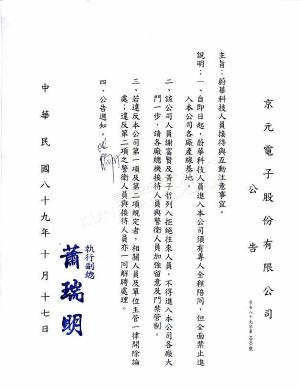 京元電子股份有限公司
公告
主旨：蔚華科技人員接待與互動注意事宜。
說明：一、自即日起，蔚華科技人員進入本公司須有專人全程陪同，但全面禁止進
入本公司各廠產線基地。
二、該公司人員謝富賢及黃子哲列入拒絕往來人員，不得進入本公司各廠大
門一步，請各廠總機接待人員與警衛人員加強留意及門禁管制。
三、若違反本公司第一項及第二項規定者，相關人員及單位主管一律開除論
處；違反第二項之警衛人員與接待人員亦一同解聘處理。
四、公告週知。
執行副總
蕭瑞明
中華民國八十九年十月十七日